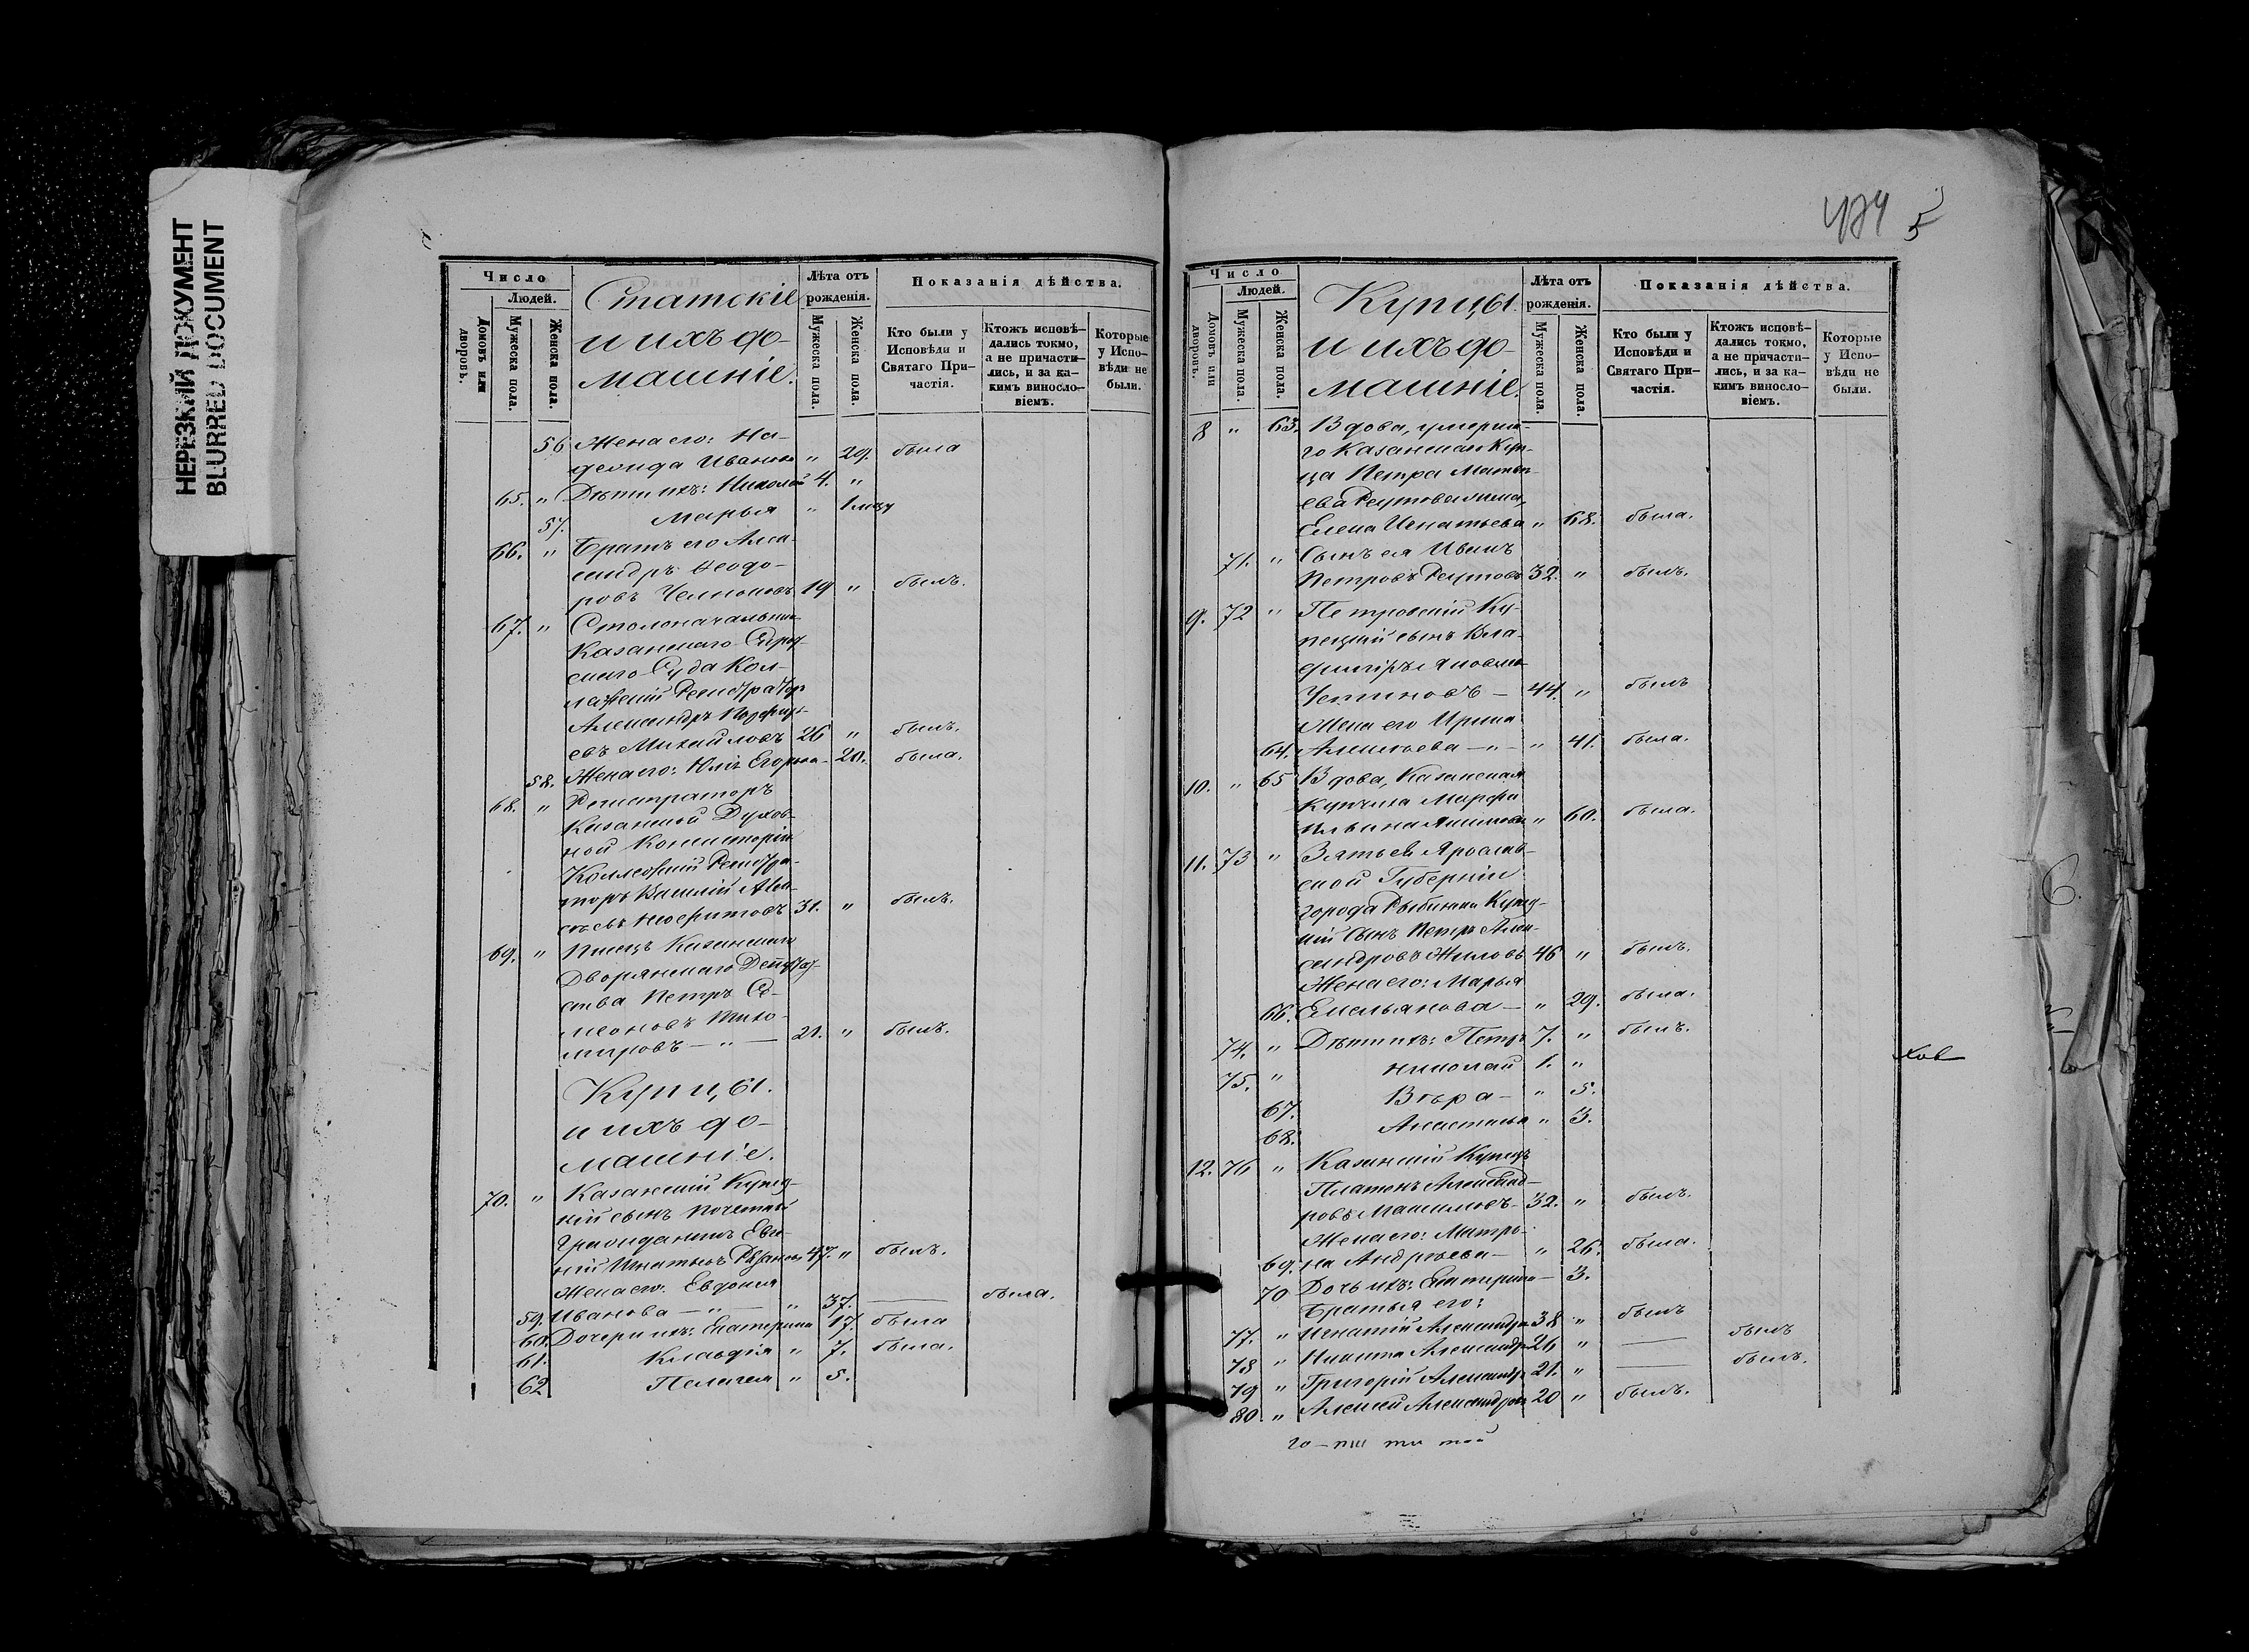 НЕРЕЗКИЙ ДОКУМЕНТ
BLURRED DOCUMENT
Число
Людей.
Домовъ или дворовъ.
Мужеска пола.
Женска пола.
Статскіе
и ихъ до-
машніе.
Лѣта отъ
рожденія.
Мужеска пола.
Женска пола.
Показанія дѣйства.
Кто были у
Исповѣди и
Святаго При-
частія.
Ктожъ исповѣ-
дались токмо,
а не причасти-
лись, и за ка-
кимъ виносло-
віемъ.
Которые
у Испо-
вѣди не
были.
56 Жена его: На-
дежда Иванова " 29. была
65. " Дѣти ихъ: Николай 4. "
57. Марья "
66. " Братъ его Алек-
сандръ Ѳеодо-
ровъ 19 " былъ.
67. " Столоначальник
Казанскаго
Суда Кол-
лежскій Регистраторъ
Александръ
евъ Михайловъ 26 " былъ.
58. Жена его: Егорова - 20. была.
68. " Регистраторъ
Казанской Духов-
ной Консисторіи
Коллежскій Регистра-
торъ Василій
31. " былъ.
69. " Писецъ Казанскаго
Дворянскаго
ства Петръ Си-
меоновъ Тихо-
мировъ — " — 21. " былъ.
Купцы.
и ихъ до-
машніе.
70. " Казанскій Купец-
кій сынъ почетный
Гражданинъ Евге-
ній 47. " былъ.
Жена его: Евдокія
59. Иванова — " — " 37. — была.
60. Дочери ихъ: Екатерина 17. была
61. Клавдія " 7. была.
62 Пелагея " 5.
474 5
Число
Людей.
Домовъ или дворовъ.
Мужеска пола.
Женска пола.
Купцы.
и ихъ до-
машніе.
Лѣта отъ
рожденія.
Мужеска пола.
Женска пола.
Показанія дѣйства.
Кто были у
Исповѣди и
Святаго При-
частія.
Ктожъ исповѣ-
дались токмо,
а не причасти-
лись, и за ка-
кимъ виносло-
віемъ.
Которые
у Испо-
вѣди не
были.
8 " 63. Вдова, умерша-
го Казанскаго Куп-
ца Петра Матвѣ-
ева Реутова жена,
Елена Игнатьева " 68. была.
71. " Сынъ ея Иванъ
Петровъ Реутовъ 32. " былъ.
9. 72 " Петровскій Ку-
пецкій сынъ Вла-
диміръ Яковлевъ
44. " былъ
Жена его Ирина
64. Алексѣева — " — " 41. была.
10. " 65 Вдова, Казанская
Купчиха Марфа
Ильина " 60. была.
11. 73 " Зять ея Ярослав-
ской Губерніи
города Рыбинска Купец-
кій сынъ Петръ Алек-
сандровъ Жиловъ 46 " былъ.
Жена его: Марья
66. Емельянова — " 29. была.
74. " Дѣти ихъ: Петръ 7. " былъ.
75. " Николай 1. "
67. Вѣра — " 5.
68. Анастасія " 3.
12. 76 " Казанскій Купецъ
Платонъ Александ-
ровъ Максимовъ 32. " былъ.
Жена его: Матро-
69. на Андреева — " 26. была.
70 Дочь ихъ: Екатерина — 3.
Братья его:
77. " Игнатій Александр 38 " былъ
78 " Никита Александр 26 " — былъ
79 " Григорій Александр 21. " — былъ.
80 " Алексѣй Александров 20 " былъ.